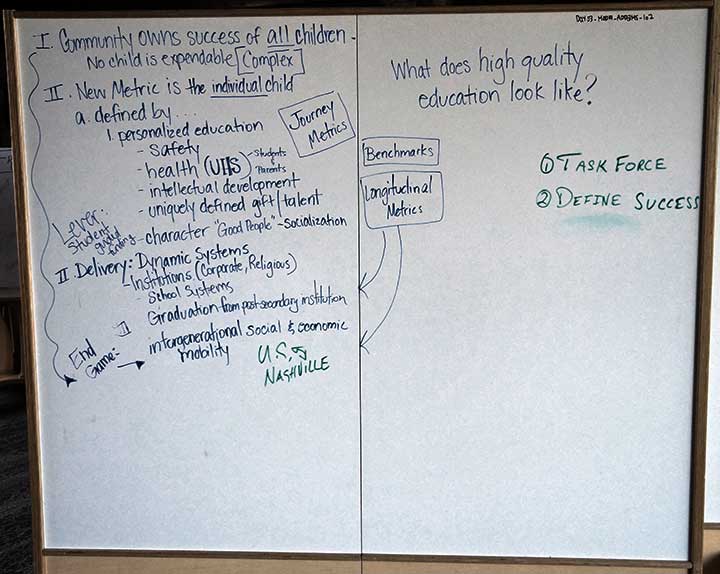 I. Community owns success of all children -
No child is expendable Complex
II. New Metric is the individual child
a. defined by....
1. personalized education
- safety
- health (UHS) - Students - Parents
- intellectual development
- uniquely defined gift/talent
- character "Good People" - Socialization
Lever:
Student
guided
funding
Journey
Metrics
II. Delivery: Dynamic Systems
- Institutions (Corporate, Religious)
- School Systems
II Graduation from post secondary institution
End
Game:
intergenerational social & economic
mobility
U.S.
NASHVILLE
What does high quality
education look like?
Benchmarks
Longitudinal
Metrics
① TASK FORCE
② DEFINE SUCCESS